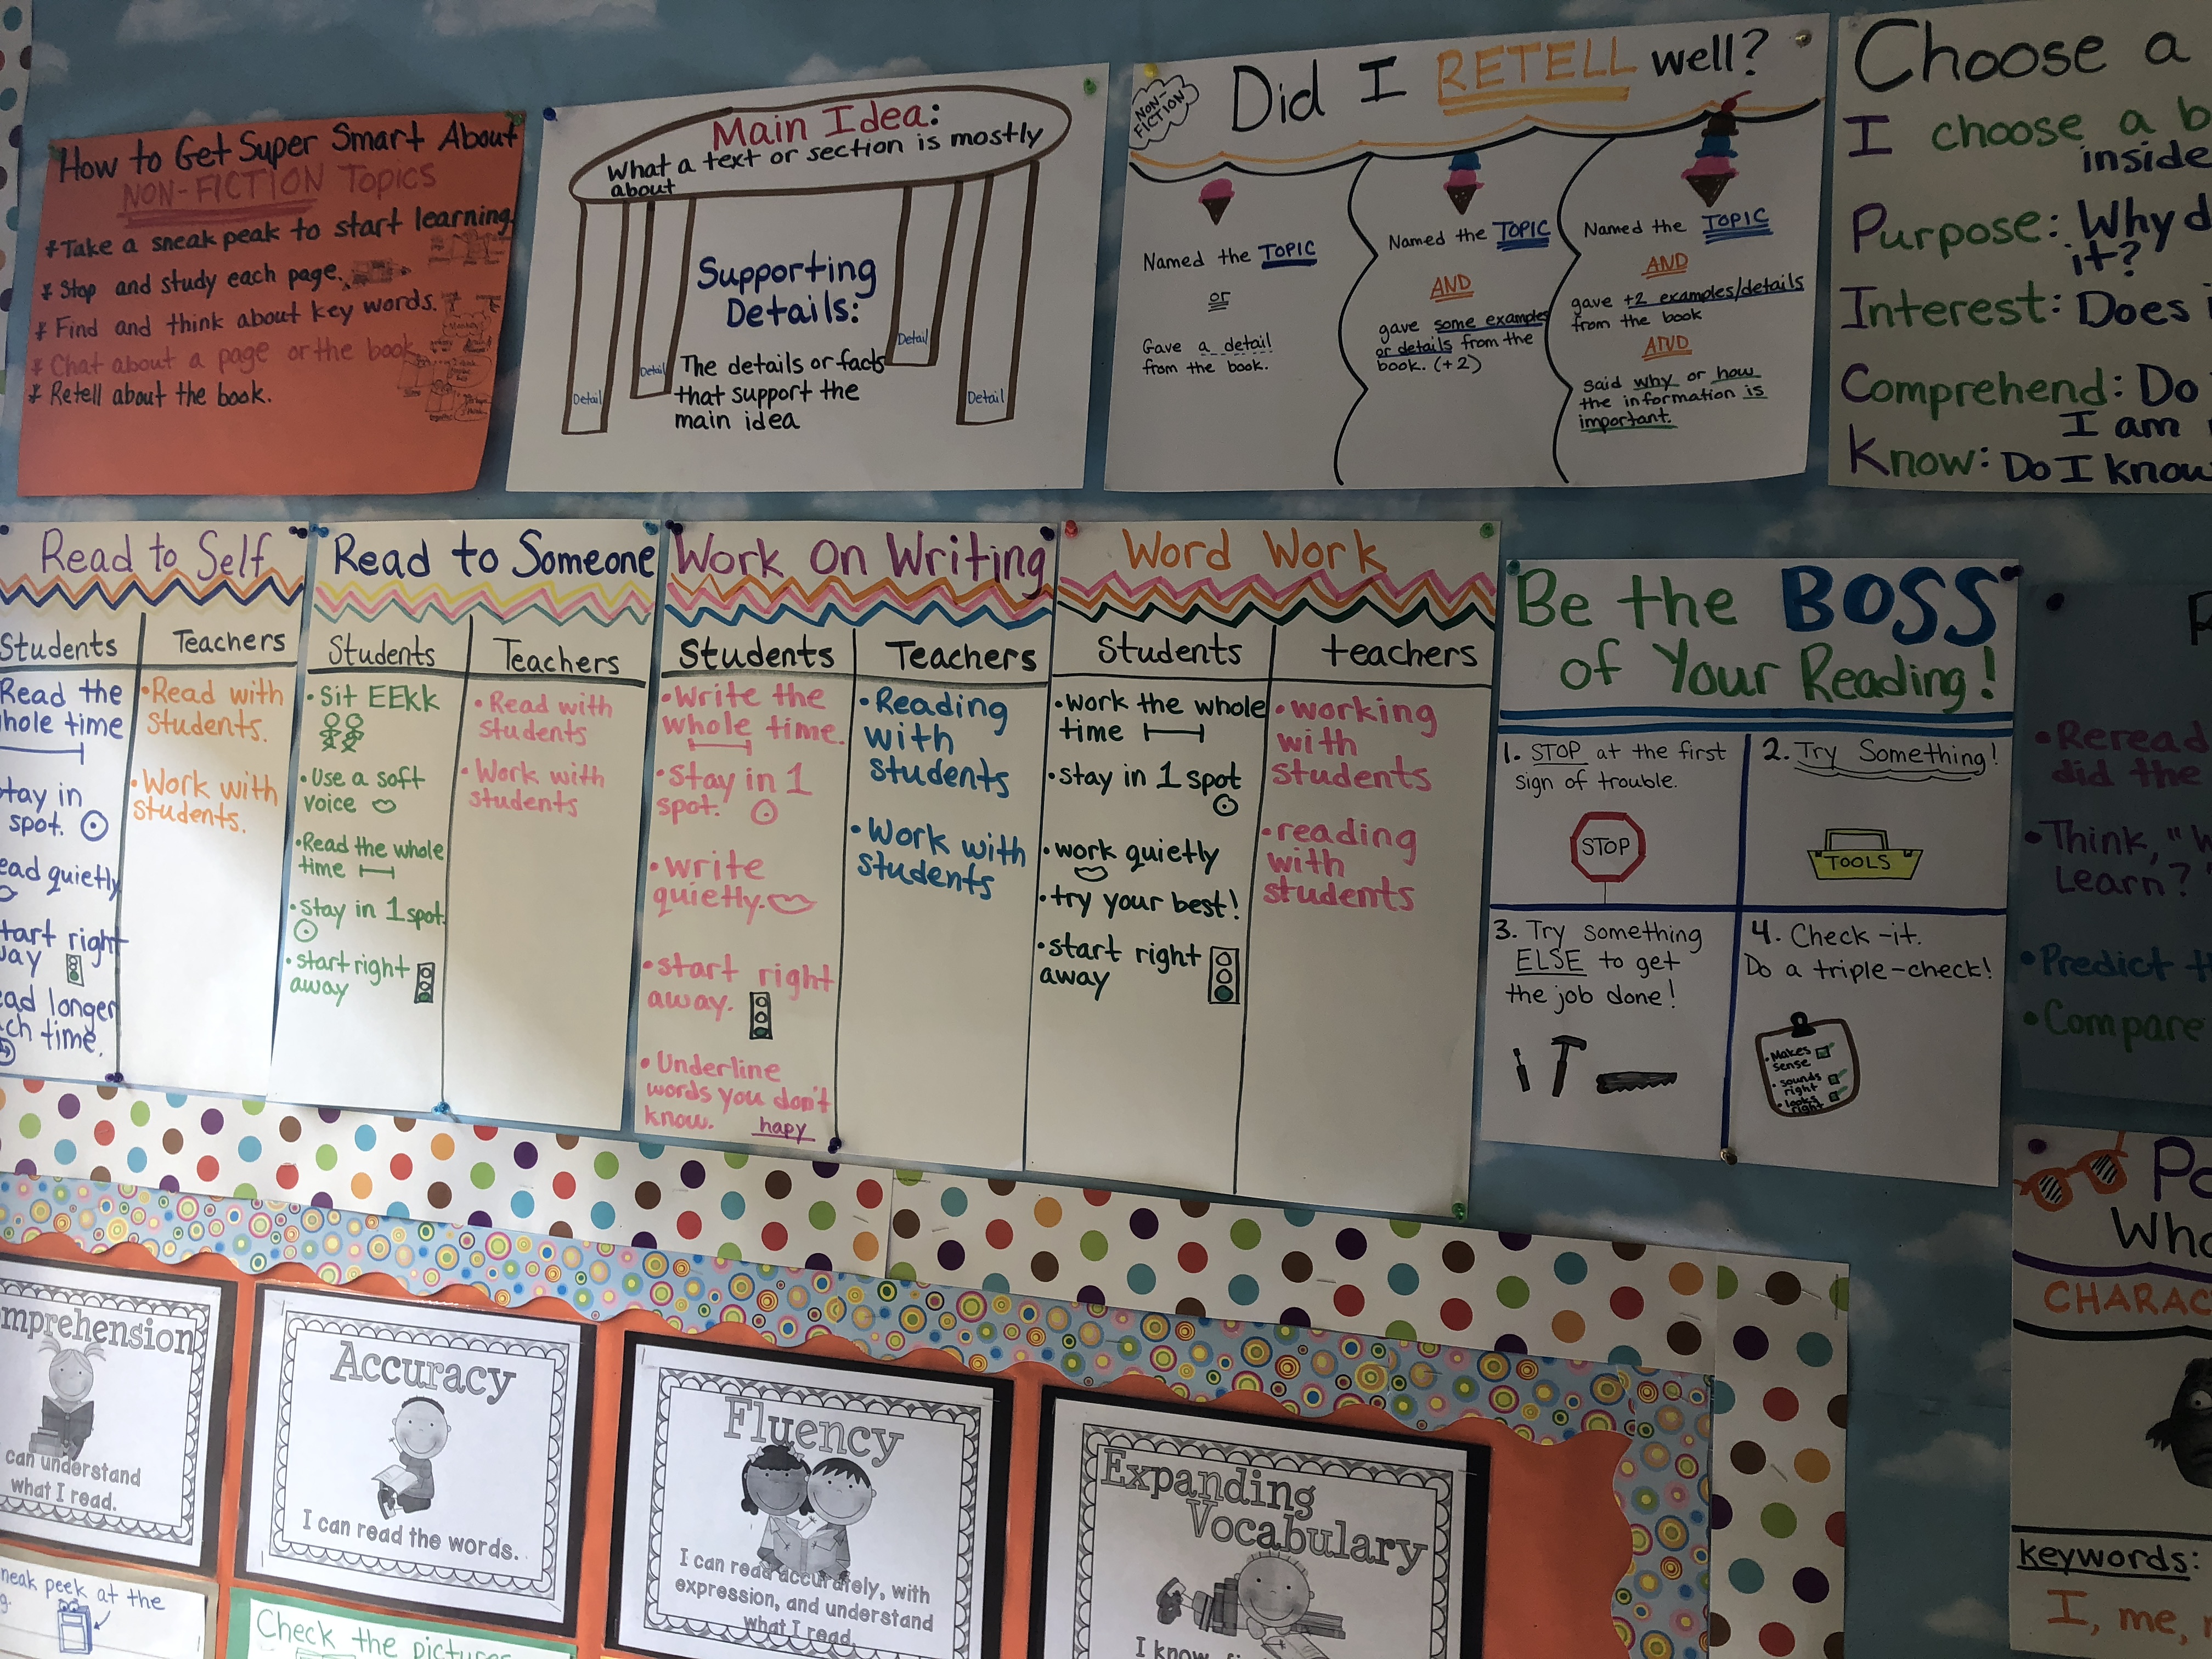 How to Get Super Smart About
NON-FICTION Topics
* Take a sneak peak to start learning.
* Stop and study each page.
* Find and think about key words.
* Chat about a page or the book
* Retell about the book.
Main Idea:
What a text or section is mostly
about
Supporting
Details:
The details or facts
that support the
main idea
Detail
Detail
Detail
Detail
NON-
FICTION
Did I RETELL well?
Named the TOPIC
or
Gave a detail
from the book.
Named the TOPIC
AND
gave some examples
or details from the
book. (+2)
Named the TOPIC
AND
gave +2 examples/details
from the book
AND
said why or how
the information is
important.
Choose a
I choose a b
inside
Purpose: Why d
it?
Interest: Does i
Comprehend: Do
I am
Know: Do I know
Read to Self
Students
Read the
hole time
tay in
spot.
ead quietly
tart right
way
ead longer
ch time.
Teachers
• Read with
students.
• Work with
students.
Read to Someone
Students
• Sit EEKK
• Use a soft
voice
• Read the whole
time
• stay in 1 spot.
• start right
away
Teachers
• Read with
students
• Work with
students
Work on Writing
Students
• Write the
whole time.
• Stay in 1
spot.
• write
quietly.
• start right
away.
• Underline
words you don't
know. hapy
Teachers
• Reading
with
students
• Work with
students
Word Work
Students
• work the whole
time
• stay in 1 spot
• work quietly
• try your best!
• start right
away
teachers
• working
with
students
• reading
with
students
Be the BOSS
of Your Reading!
1. STOP at the first
sign of trouble.
STOP
2. Try Something!
TOOLS
3. Try something
ELSE to get
the job done!
4. Check-it.
Do a triple-check!
• Makes
sense
• sounds
right
• looks
right
• Reread
did the
• Think, "W
Learn?"
• Predict th
• Compare
Po
Who
CHARAC
keywords:
I, me,
mprehension
can understand
what I read.
Accuracy
I can read the words.
Fluency
I can read accurately, with
expression, and understand
what I read.
Expanding
Vocabulary
I know
neak peek at the
Check the pictures